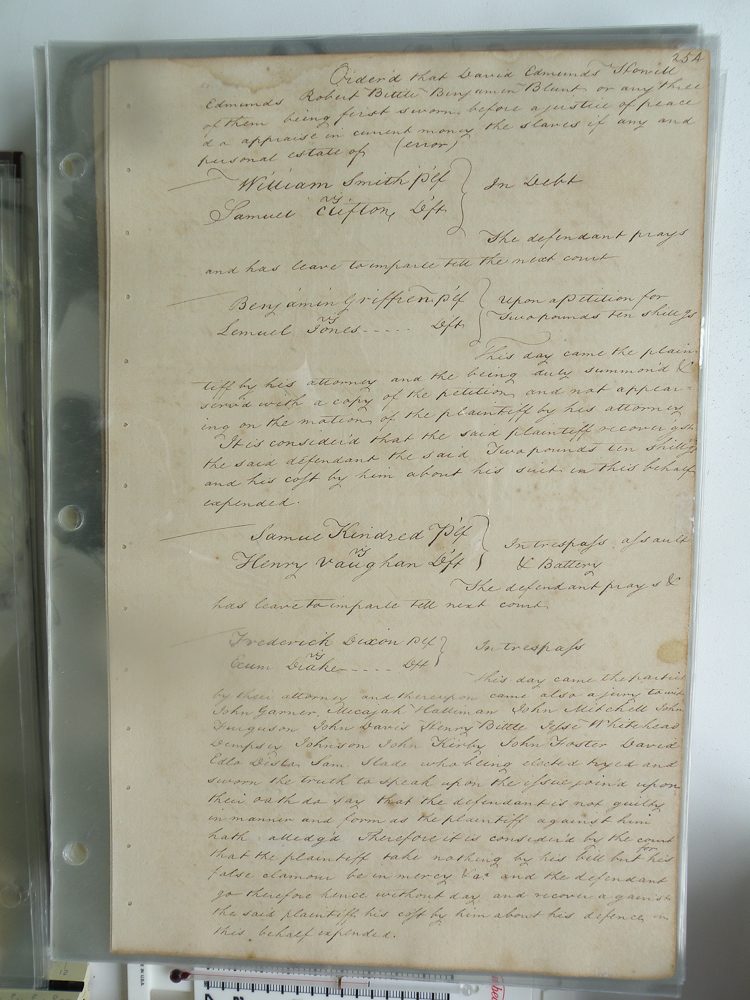 254
Order'd that David Edmunds Howell
Edmunds Robert Bittle Benjamin Blunt or any three
of them being first sworn before a justice of peace
do appraise in current money the slaves if any and
personal estate of (error)
William Smith Plf
vs
Samuel Clifton, Dft
In Debt
The defendant prays
and has leave to imparle till the next court
Benjamin Griffien plf
vs
Lemuel Jones ..... Dft
Upon a Petition for
Two pounds ten shillgs
This day came the plain
tiff by his attorney and the being duly summon'd &
serv'd with a copy of the petition and not appear-
ing on the motion of the plaintiff by his attorney
It is consider'd that the said plaintiff recover agst
the said defendant the said Two pounds ten shillgs
and his cost by him about his suit in this behalf
expended.
Samuel Kindred Plf
vs
Henry Vaughan Dft
In trespass, assault
& Battery
The defendant prays &
has leave to imparle till next court
Frederick Dixon Plf
vs
Exum Drake ..... Dft
In trespass
This day came the parties
by their attorney and thereupon came also a jury to wit
John Garner, Mecajah Halleman John Mitchell John
Furguson John Davis Henry Bittle Jesse Whitehead
Dempsey Johnson John Kirby John Foster David
Edlo Sam. Slade who being elected tryed and
sworn the truth to speak upon the issue join'd upon
their oath do say that the defendant is not guilty
in manner and form as the plaintiff against him
hath alledg'd Therefore it is consider'd by the court
that the plaintiff take nothing by his bill but for his
false clamour be in mercy &ac and the defendant
go therefore hence without day and recover against
the said plaintiff his cost by him about his defence in
this behalf expended.
12